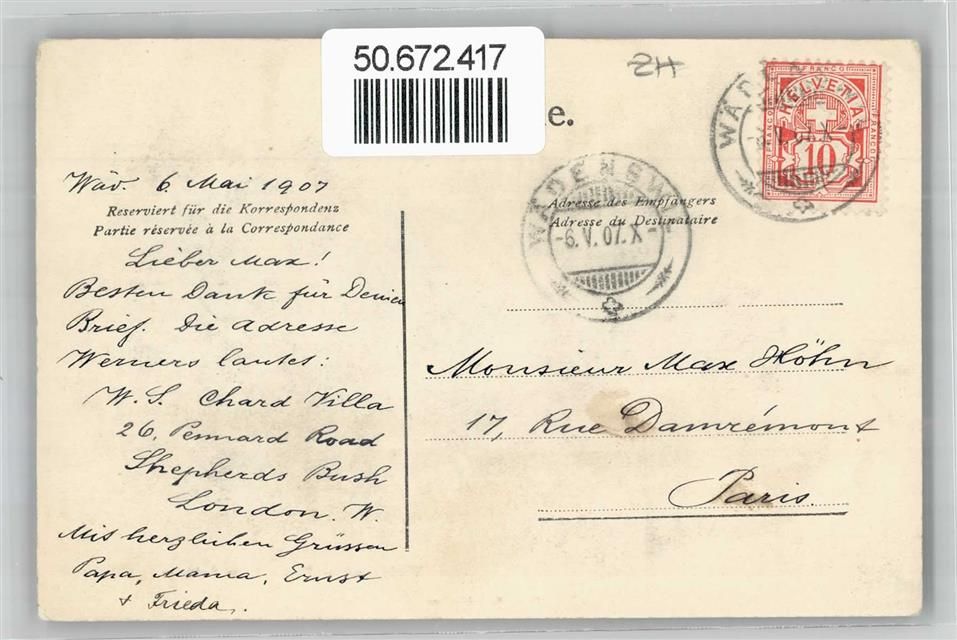 50.672.417
ZH
e.
FRANCO
HELVETIA
FRANCO
FRANCO
10
WÄDENSW
-6.V.07.X-
Adresse des Empfängers
Adresse du Destinataire
Wäd. 6 Mai 1907
Reserviert für die Korrespondenz
Partie réservée à la Correspondance
Lieber Max!
Besten Dank für Deinen
Brief. Die Adresse
Werners lautet:
W. S. Chard Villa
26, Pennard Road
Shepherds Bush
London. W.
Mit herzlichen Grüssen
Papa, Mama, Ernst
+ Frieda.
Monsieur Max Höhn
17, Rue Damrémont
Paris.